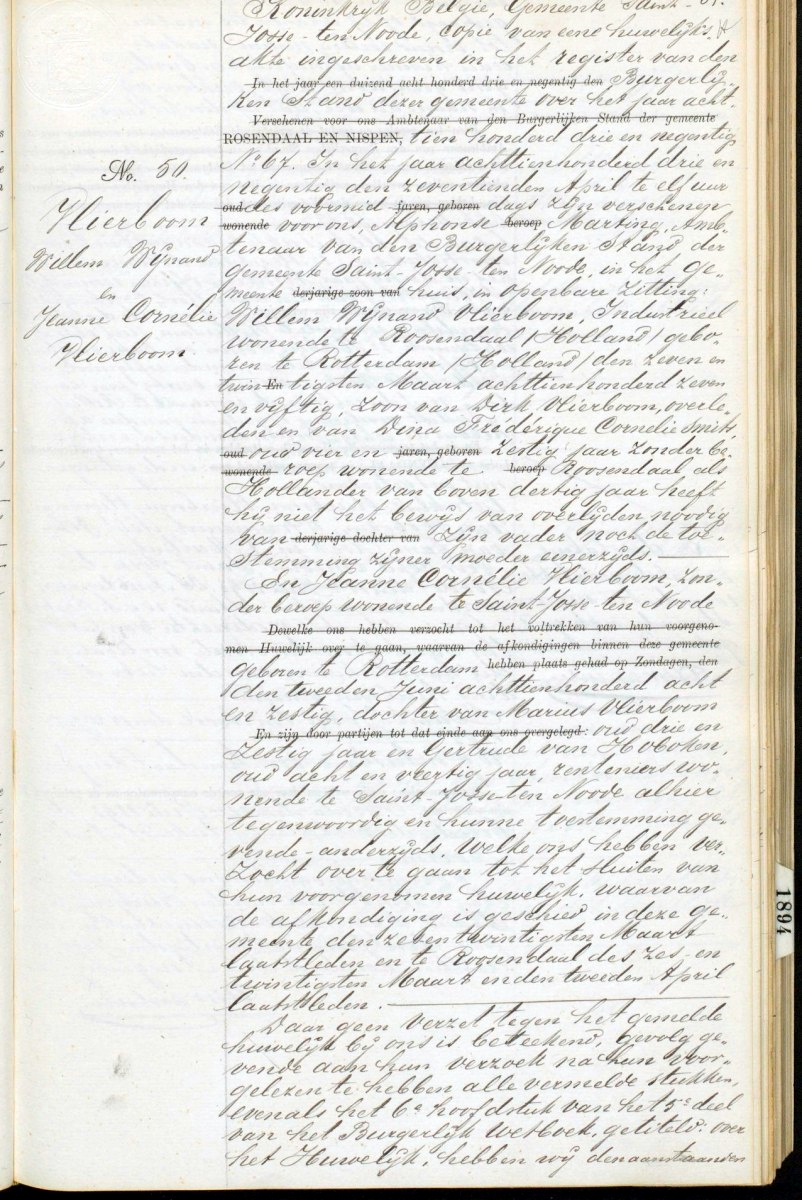 Koninkrijk België, Gemeente Saint-
Josse-ten Noode, copie van eene huwelijks-
akte ingeschreven in het register van den
In het jaar een duizend acht honderd drie en negentig den Burgerlij-
ken Stand dezer gemeente over het jaar acht-
Verschenen voor ons Ambtenaar van den Burgerlijken Stand der gemeente
ROSENDAAL EN NISPEN, tien honderd drie en negentig
No 67. In het jaar achttienhonderd drie en
No. 50.
negentig den zeventienden April te elf uur
Vlierboom
oud des voormid jaren, geboren dags zijn verschenen
wonende voor ons, Alphonse beroep Martin, Amb-
Willem Wijnand
tenaar van den Burgerlijken Stand der
gemeente Saint-Josse-ten Noode, in het ge-
en
meente derjarige zoon van huis, in openbare zitting:
Jeanne Cornélie
Willem Wijnand Vlierboom, Industrieel
wonende te Roosendaal (Holland) gebo-
Vlierboom
ren te Rotterdam (Holland) den zeven en
twin En tigsten Maart achttienhonderd zeven
en vijftig, zoon van Dirk Vlierboom, overle-
den en van Dina Frederique Cornelie Smits,
oud oud vier en jaren, geboren zestig jaar zonder be-
wonende roep wonende te beroep Roosendaal als
Hollander van boven dertig jaar heeft
hij niet het bewijs van overlijden noodig
van derjarige dochter van zijn vader noch de toe-
stemming zijner moeder eenerzijds.
En Jeanne Cornélie Vlierboom, zon-
der beroep wonende te Saint-Josse-ten Noode
Dewelke ons hebben verzocht tot het voltrekken van hun voorgeno-
men Huwelijk over te gaan, waarvan de afkondigingen binnen deze gemeente
geboren te Rotterdam hebben plaats gehad op Zondagen, den
den tweeden Juni achttienhonderd acht
en zestig, dochter van Marius Vlierboom
En zijn door partijen tot dat einde aan ons overgelegd: oud drie en
zestig jaar en Gertrude van Hoboken,
oud acht en veertig jaar, renteniers wo-
nende te Saint-Josse-ten Noode alhier
tegenwoordig en hunne toestemming ge-
vende - anderzijds. Welke ons hebben ver-
zocht over te gaan tot het sluiten van
hun voorgenomen huwelijk, waarvan
de afkondiging is geschied in deze ge-
meente den zeventwintigsten Maart
laatstleden en te Roosendaal des zes-en
twintigsten Maart en den tweeden April
laatstleden.
Daar geen verzet tegen het gemelde
huwelijk bij ons is beteekend, gevolg ge-
vende aan hun verzoek na hun voor-
gelezen te hebben alle vermelde stukken,
evenals het 6e hoofdstuk van het 5e deel
van het Burgerlijk Wetboek, getiteld: over
het Huwelijk, hebben wij den aanstaanden
1894